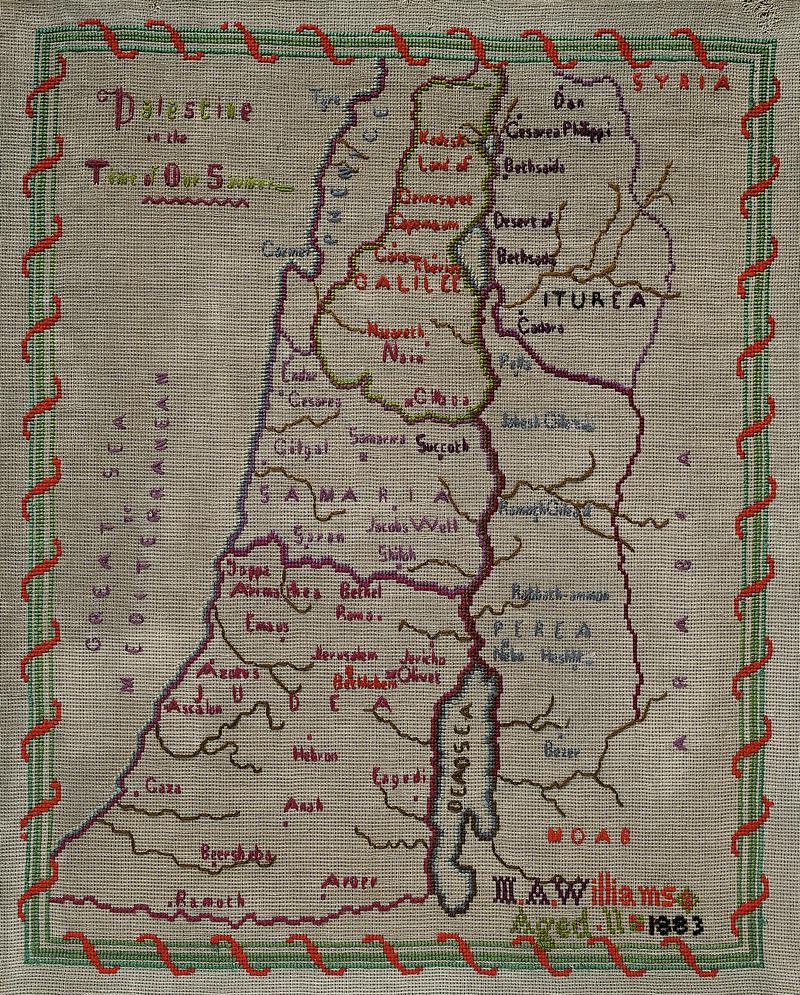 Palestine
in the
Time of Our Saviour
SYRIA
Tyre
PHENICE
Dan
Cesarea Philippi
Kadesh
Land of
Gennesaret
Capernaum
Bethsaida
Desert of
Bethsada
Carmel
Cana
Tiberias
GALILEE
ITUREA
Gadara
Nazareth
Nain
Pella
Endor
Cesarea
Gilboa
Jabesh Gilead
Gilgal
Samaria
Succoth
GREAT SEA
or
MEDITERRANEAN
SAMARIA
Ramoth Gilead
Jacobs Well
Saron
Shiloh
Joppa
Arimathea
Bethel
Rama
Rabbath-ammon
Emaus
PEREA
Jerusalem
Jericho
Nebo
Azotus
Bethlehem
Olivet
JUDEA
Ascalon
ARABIA
DEAD SEA
Hebron
Bezer
Gaza
Engedi
Anah
MOAB
Beersheba
Aroer
Ramoth
M.A.Williams
Aged 11
1883